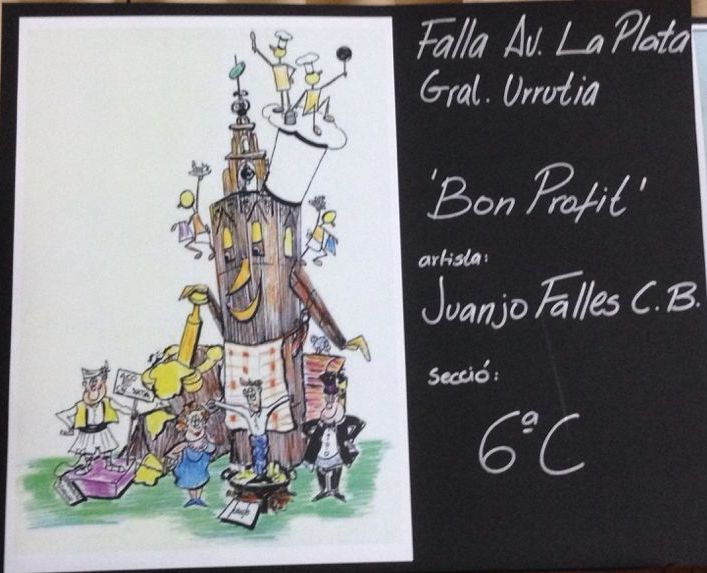 Falla Av. La Plata
Gral. Urrutia
'Bon Profit'
artista:
Juanjo Falles C.B.
Secció:
6ª C